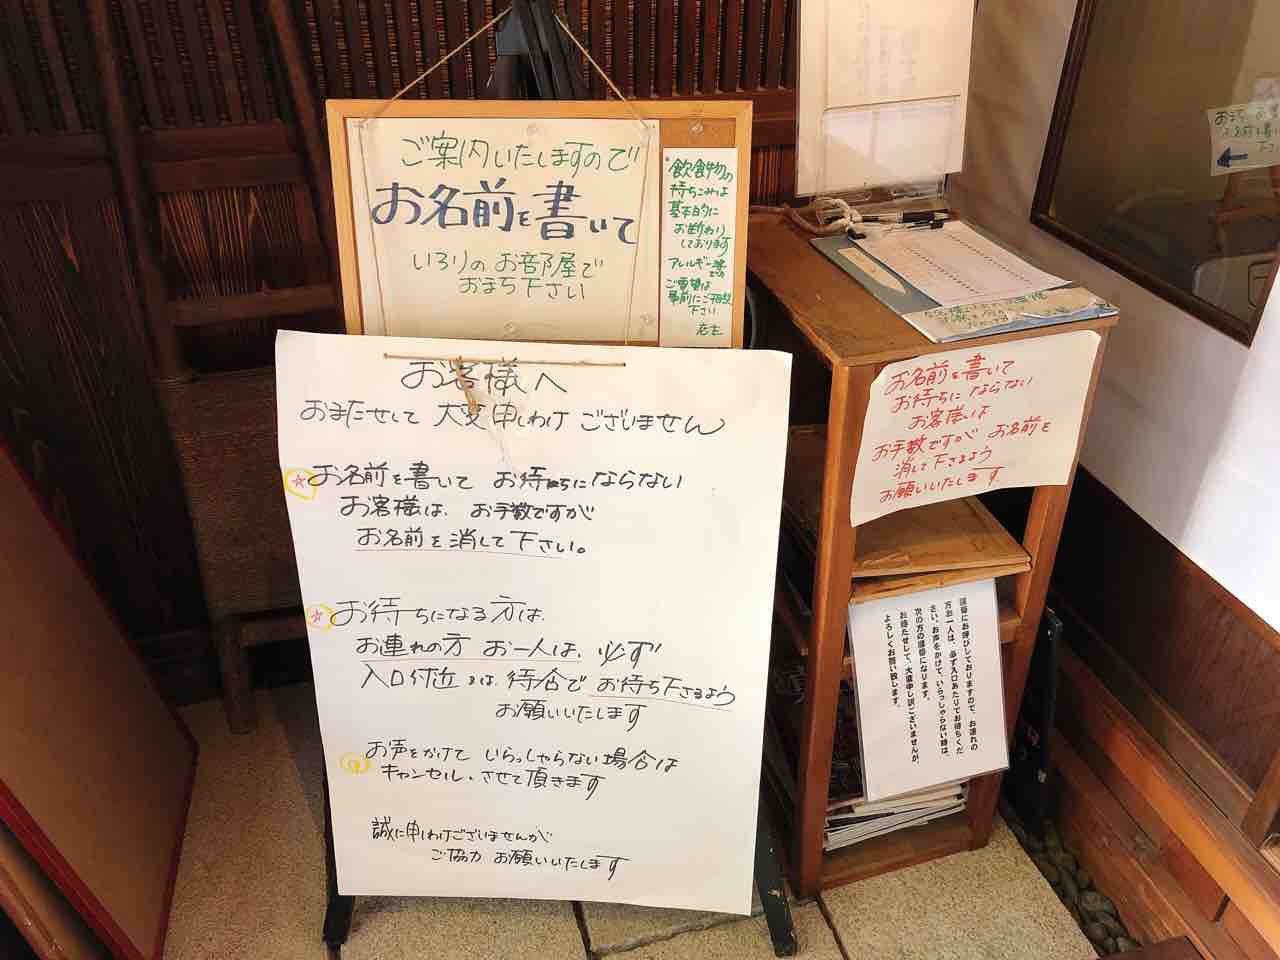 ご案内いたしますので
お名前を書いて
いろりのお部屋で
おまち下さい
飲食物の
持ちこみは
基本的に
お断わり
しております
アレルギー等で
ご要望は
事前にご相談
下さい
店主
お客様へ
おまたせして 大変申しわけございません
☆お名前を書いて お待ちにならない
お客様は、お手数ですが
お名前を消して下さい。
☆お待ちになる方は、
お連れの方 お一人は、必ず
入口付近又は、待合でお待ち下さるよう
お願いいたします
お声をかけて いらっしゃらない場合は
キャンセルさせて頂きます
誠に申しわけございませんが
ご協力 お願いいたします
お名前を書いて
お待ちにならない
お客様は
お手数ですが お名前を
消して下さるよう
お願いいたします
順番にお呼びしておりますので、お連れの
方お一人は、必ず入口あたりでお待ちくだ
さい。お声をかけて、いらっしゃらない時は、
次の方の順番になります。
お待たせして、大変申し訳ございませんが、
よろしくお願い致します。